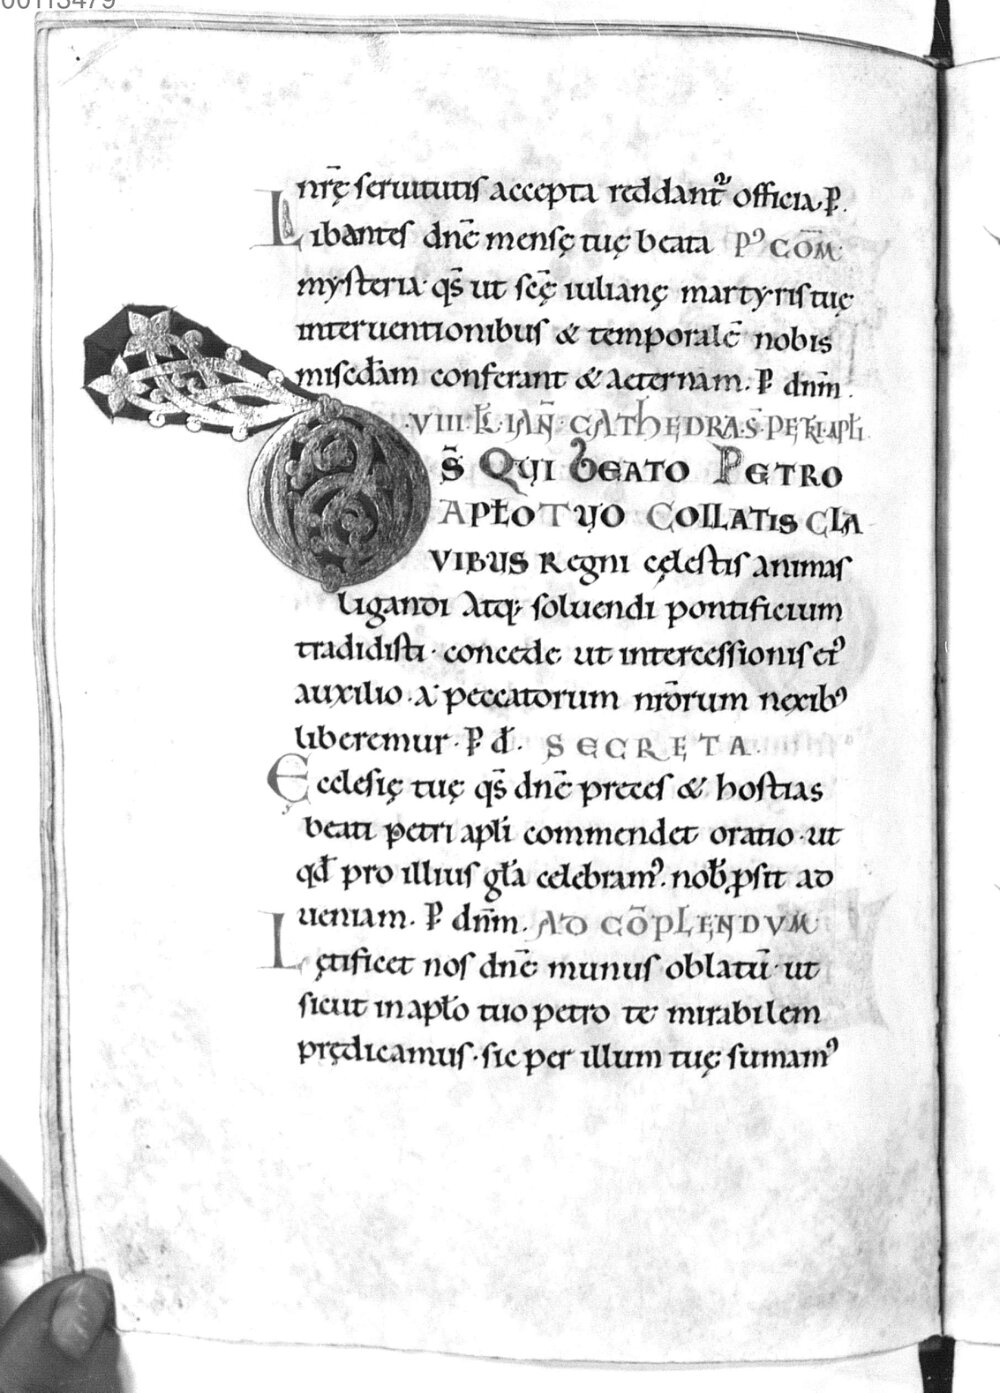 00113479
nr̄ę seruitutis accepta reddant᷑ officia. P̱.
Libantes dn̄e mensę tuę beata Pꝰ CŌM
mysteria qs̄ ut sc̄ę iulianę martyris tuę
interuentionibus & temporalē nobis
misc̄dam conferant & aeternam. P̱ dn̄m.
.VIII. KL̄. IAN̄. CATHEDRA. S̄. PETRI APLI.
DS̄ QUI BEATO PETRO
APLO TUO COLLATIS CLA
VIBUS Regni cęlestis animas
ligandi Atq; soluendi pontificium
tradidisti. concede ut intercessionis eiꝰ
auxilio. a peccatorum nr̄orum nexibꝰ
liberemur. P̱ d̄. SECRETA.
Ecclesię tuę qs̄ dn̄e preces & hostias
beati petri apl̄i commendet oratio. ut
qd̄ pro illius gl̄a celebramꝰ. nob̄ ꝓsit ad
ueniam. P̱ dn̄m. AD CŌPLENDVM
Lętificet nos dn̄e munus oblatū. ut
sicut in apl̄o tuo petro te mirabilem
prędicamus. sic per illum tuę sumamꝰ